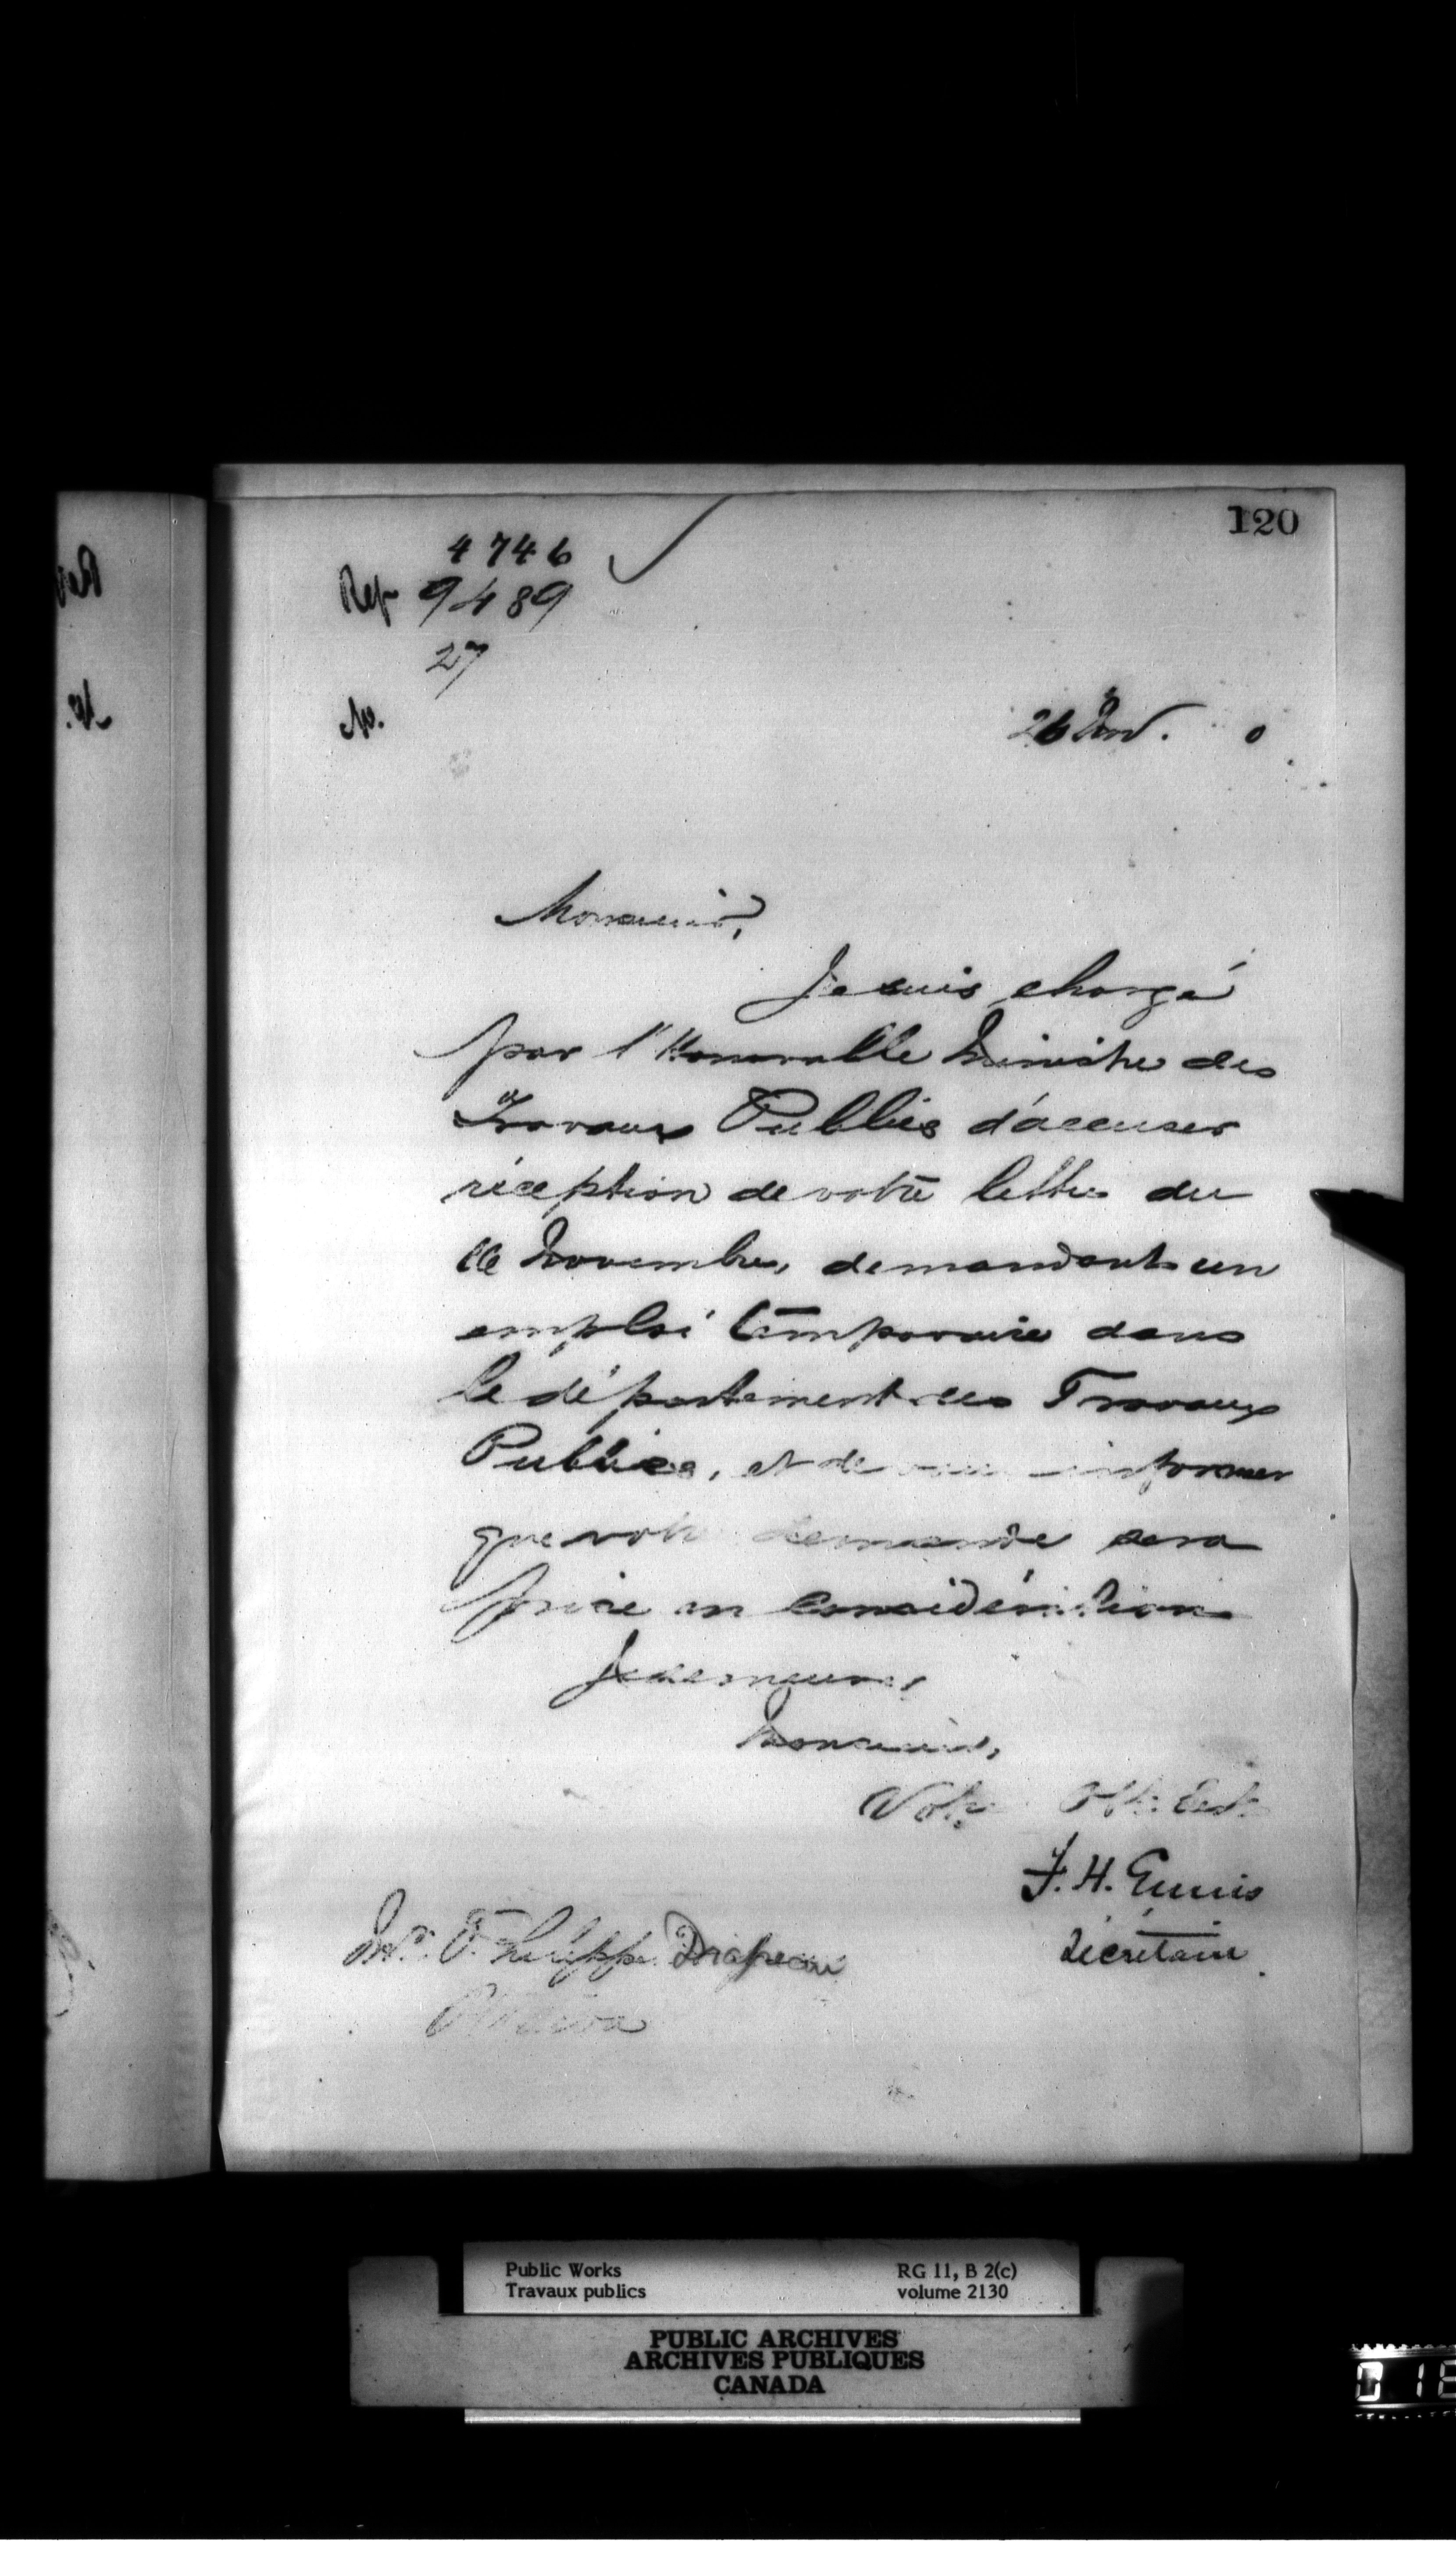 120
4746
Ref 9489
27
No.
26 Nov. 0
Monsieur,
Je suis chargé
par l'Honorable Ministre des
Travaux Publics d'accuser
réception de votre lettre du
Novembre, demandant un
emploi temporaire dans
le département des Travaux
Publics, et de vous informer
que votre demande sera
prise en considération
Je demeure,
Monsieur,
Votre Obt.
F. H. Ennis
Secrétaire
Philippe Drapeau
Ottawa
Public Works
Travaux publics
RG 11, B 2(c)
volume 2130
PUBLIC ARCHIVES
ARCHIVES PUBLIQUES
CANADA